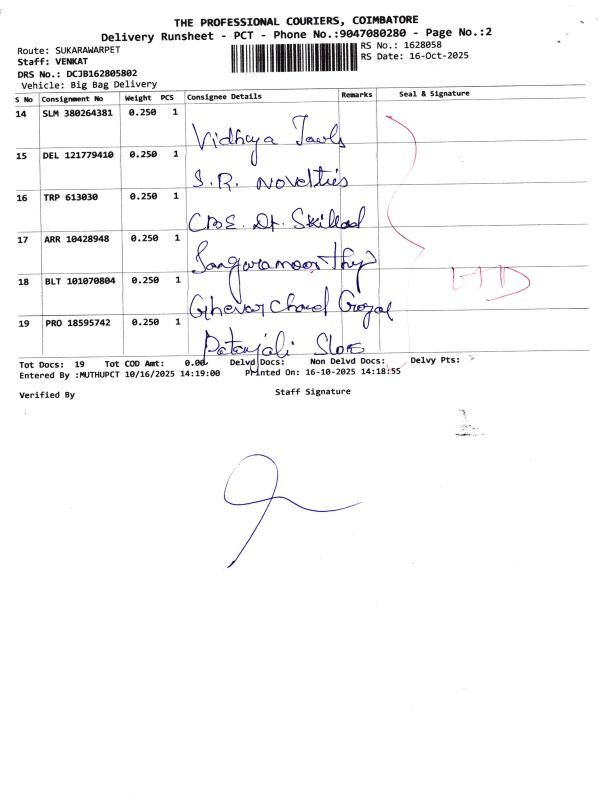 THE PROFESSIONAL COURIERS, COIMBATORE
Delivery Runsheet - PCT - Phone No.:9047080280 - Page No.:2
Route: SUKARAWARPET RS No.: 1628058
Staff: VENKAT RS Date: 16-Oct-2025
DRS No.: DCJB162805802
Vehicle: Big Bag Delivery
S No Consignment No Weight PCS Consignee Details Remarks Seal & Signature
14 SLM 380264381 0.250 1 Vidhya
15 DEL 121779410 0.250 1 S.R. Novelties
16 TRP 613030 0.250 1 CBE. Dt.
17 ARR 10428948 0.250 1
18 BLT 101070804 0.250 1 Ghevar Chand
19 PRO 18595742 0.250 1 Patanjali
Tot Docs: 19 Tot COD Amt: 0.00 Delvd Docs: Non Delvd Docs: Delvy Pts:
Entered By :MUTHUPCT 10/16/2025 14:19:00 Printed On: 16-10-2025 14:18:55
Verified By Staff Signature